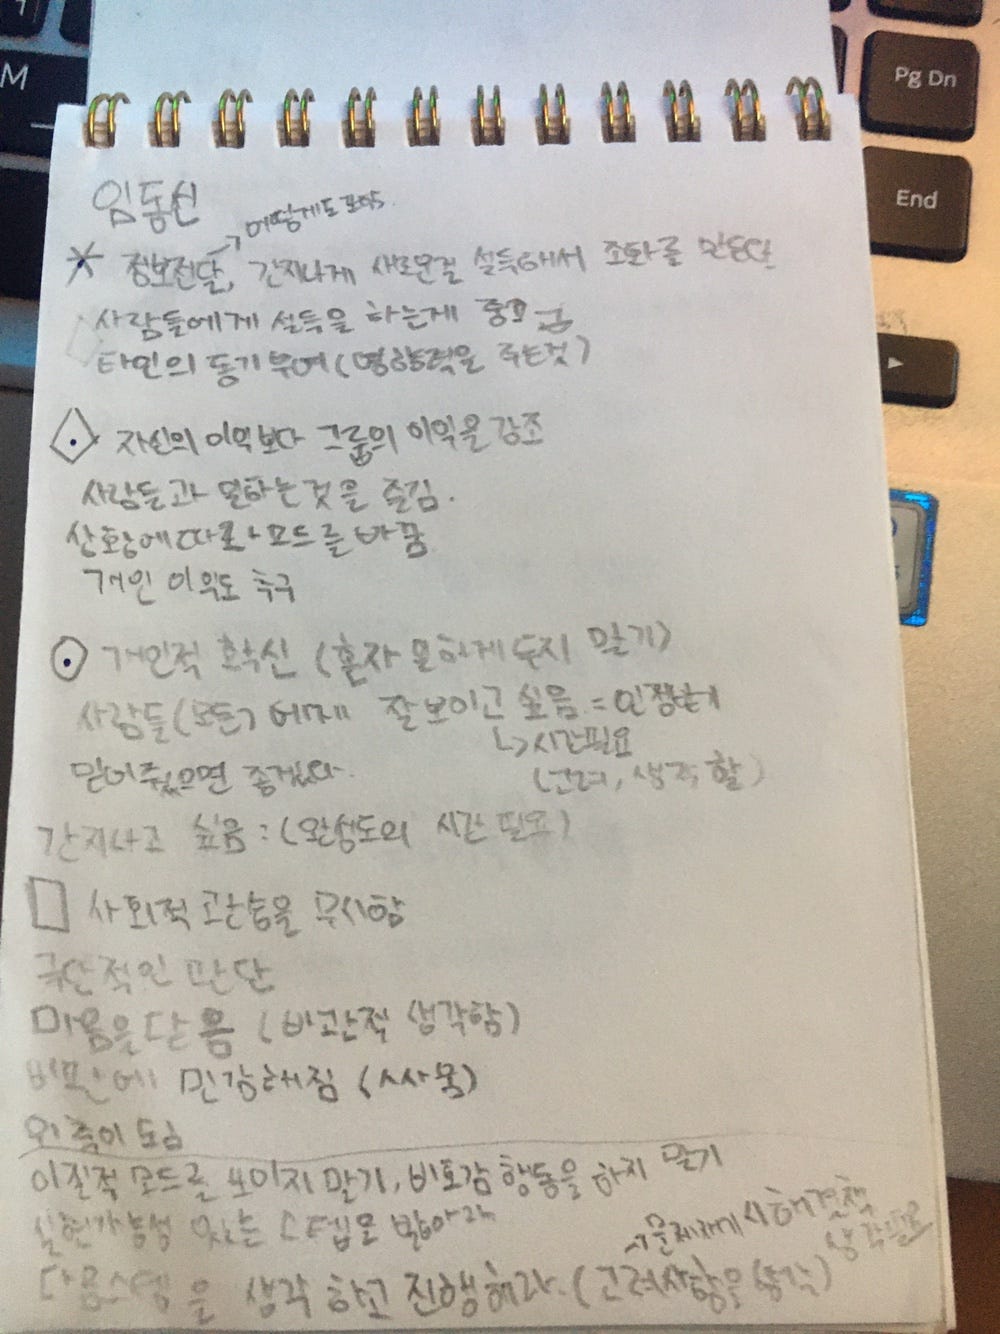 임동신
어떻게도 포장
정보전달, 간지나게 새로운걸 설득해서 조화를 만든다
사람들에게 설득을 하는게 중요
타인의 동기부여(영향력을 주는것)
자신의 이익보다 그룹의 이익을 강조
사람들과 일하는것을 즐김.
상황에따라 모드를 바꿈
개인 이익도 추구
개인적 확신 (혼자 일하게두지 말기)
사람들(모든)에게 잘보이고 싶음 = 인정받기
↳시간필요
믿어줬으면 좋겠다.
(고려, 생각할)
간지나고 싶음 : (완성도의 시간 필요)
사회적 관습을 무시함
극단적인 판단
마음을 닫음 (비관적 생각함)
비판에 민감해짐
이질적 모드를 보이지 말기, 비호감 행동을 하지 말기
실현가능성 있는 스텝을 밟아라
→문제제기시 해결책
생각필요
다음스텝을 생각하고 진행해라. (고려사항을 생각)
M
Pg Dn
End